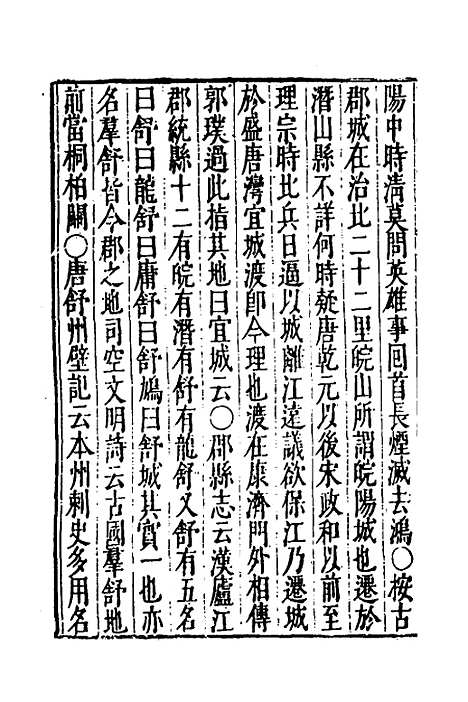 陽中時清莫問英雄事回首長煙滅去鴻○按古
郡城在治北二十二里皖山所謂皖陽城也遷於
潛山縣不詳何時疑唐乾元以後宋政和以前至
理宗時北兵日逼以城離江遠議欲保江乃遷城
於盛唐灣宜城渡卽今理也渡在康濟門外相傳
郭璞過此指其地曰宜城云○郡縣志云漢廬江
郡統縣十二有皖有潛有舒有龍舒又舒有五名
曰舒曰龍舒曰庸舒曰舒鳩曰舒城其實一也亦
名羣舒皆今郡之地司空文明詩云古國羣舒地
前當桐柏關○唐舒州壁記云本州刺史多用名